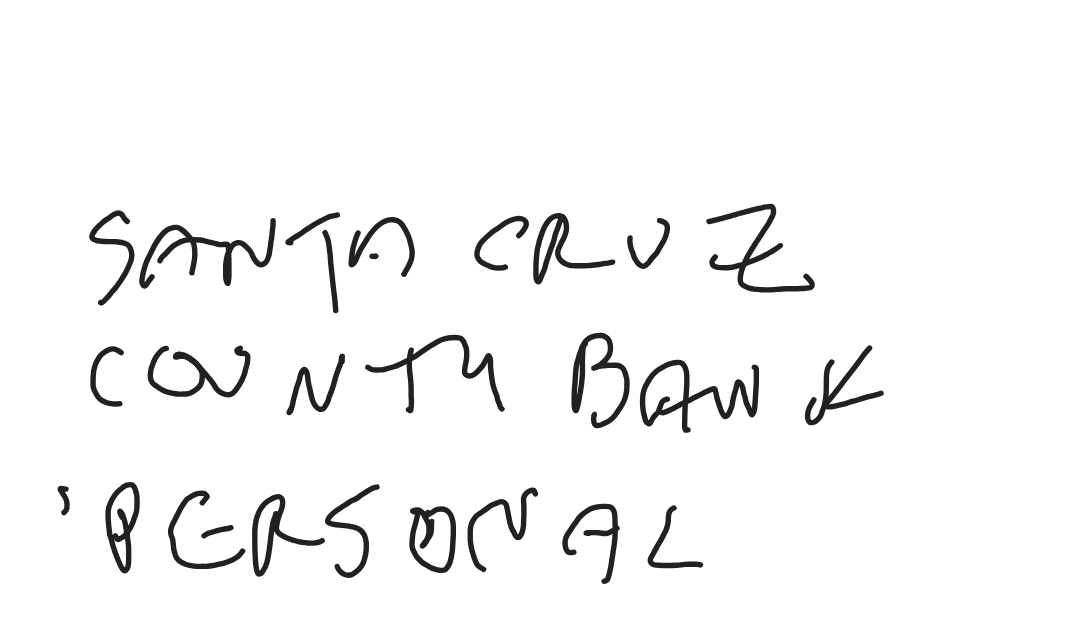 SANTA CRUZ
COUNTY BANK
'PERSONAL